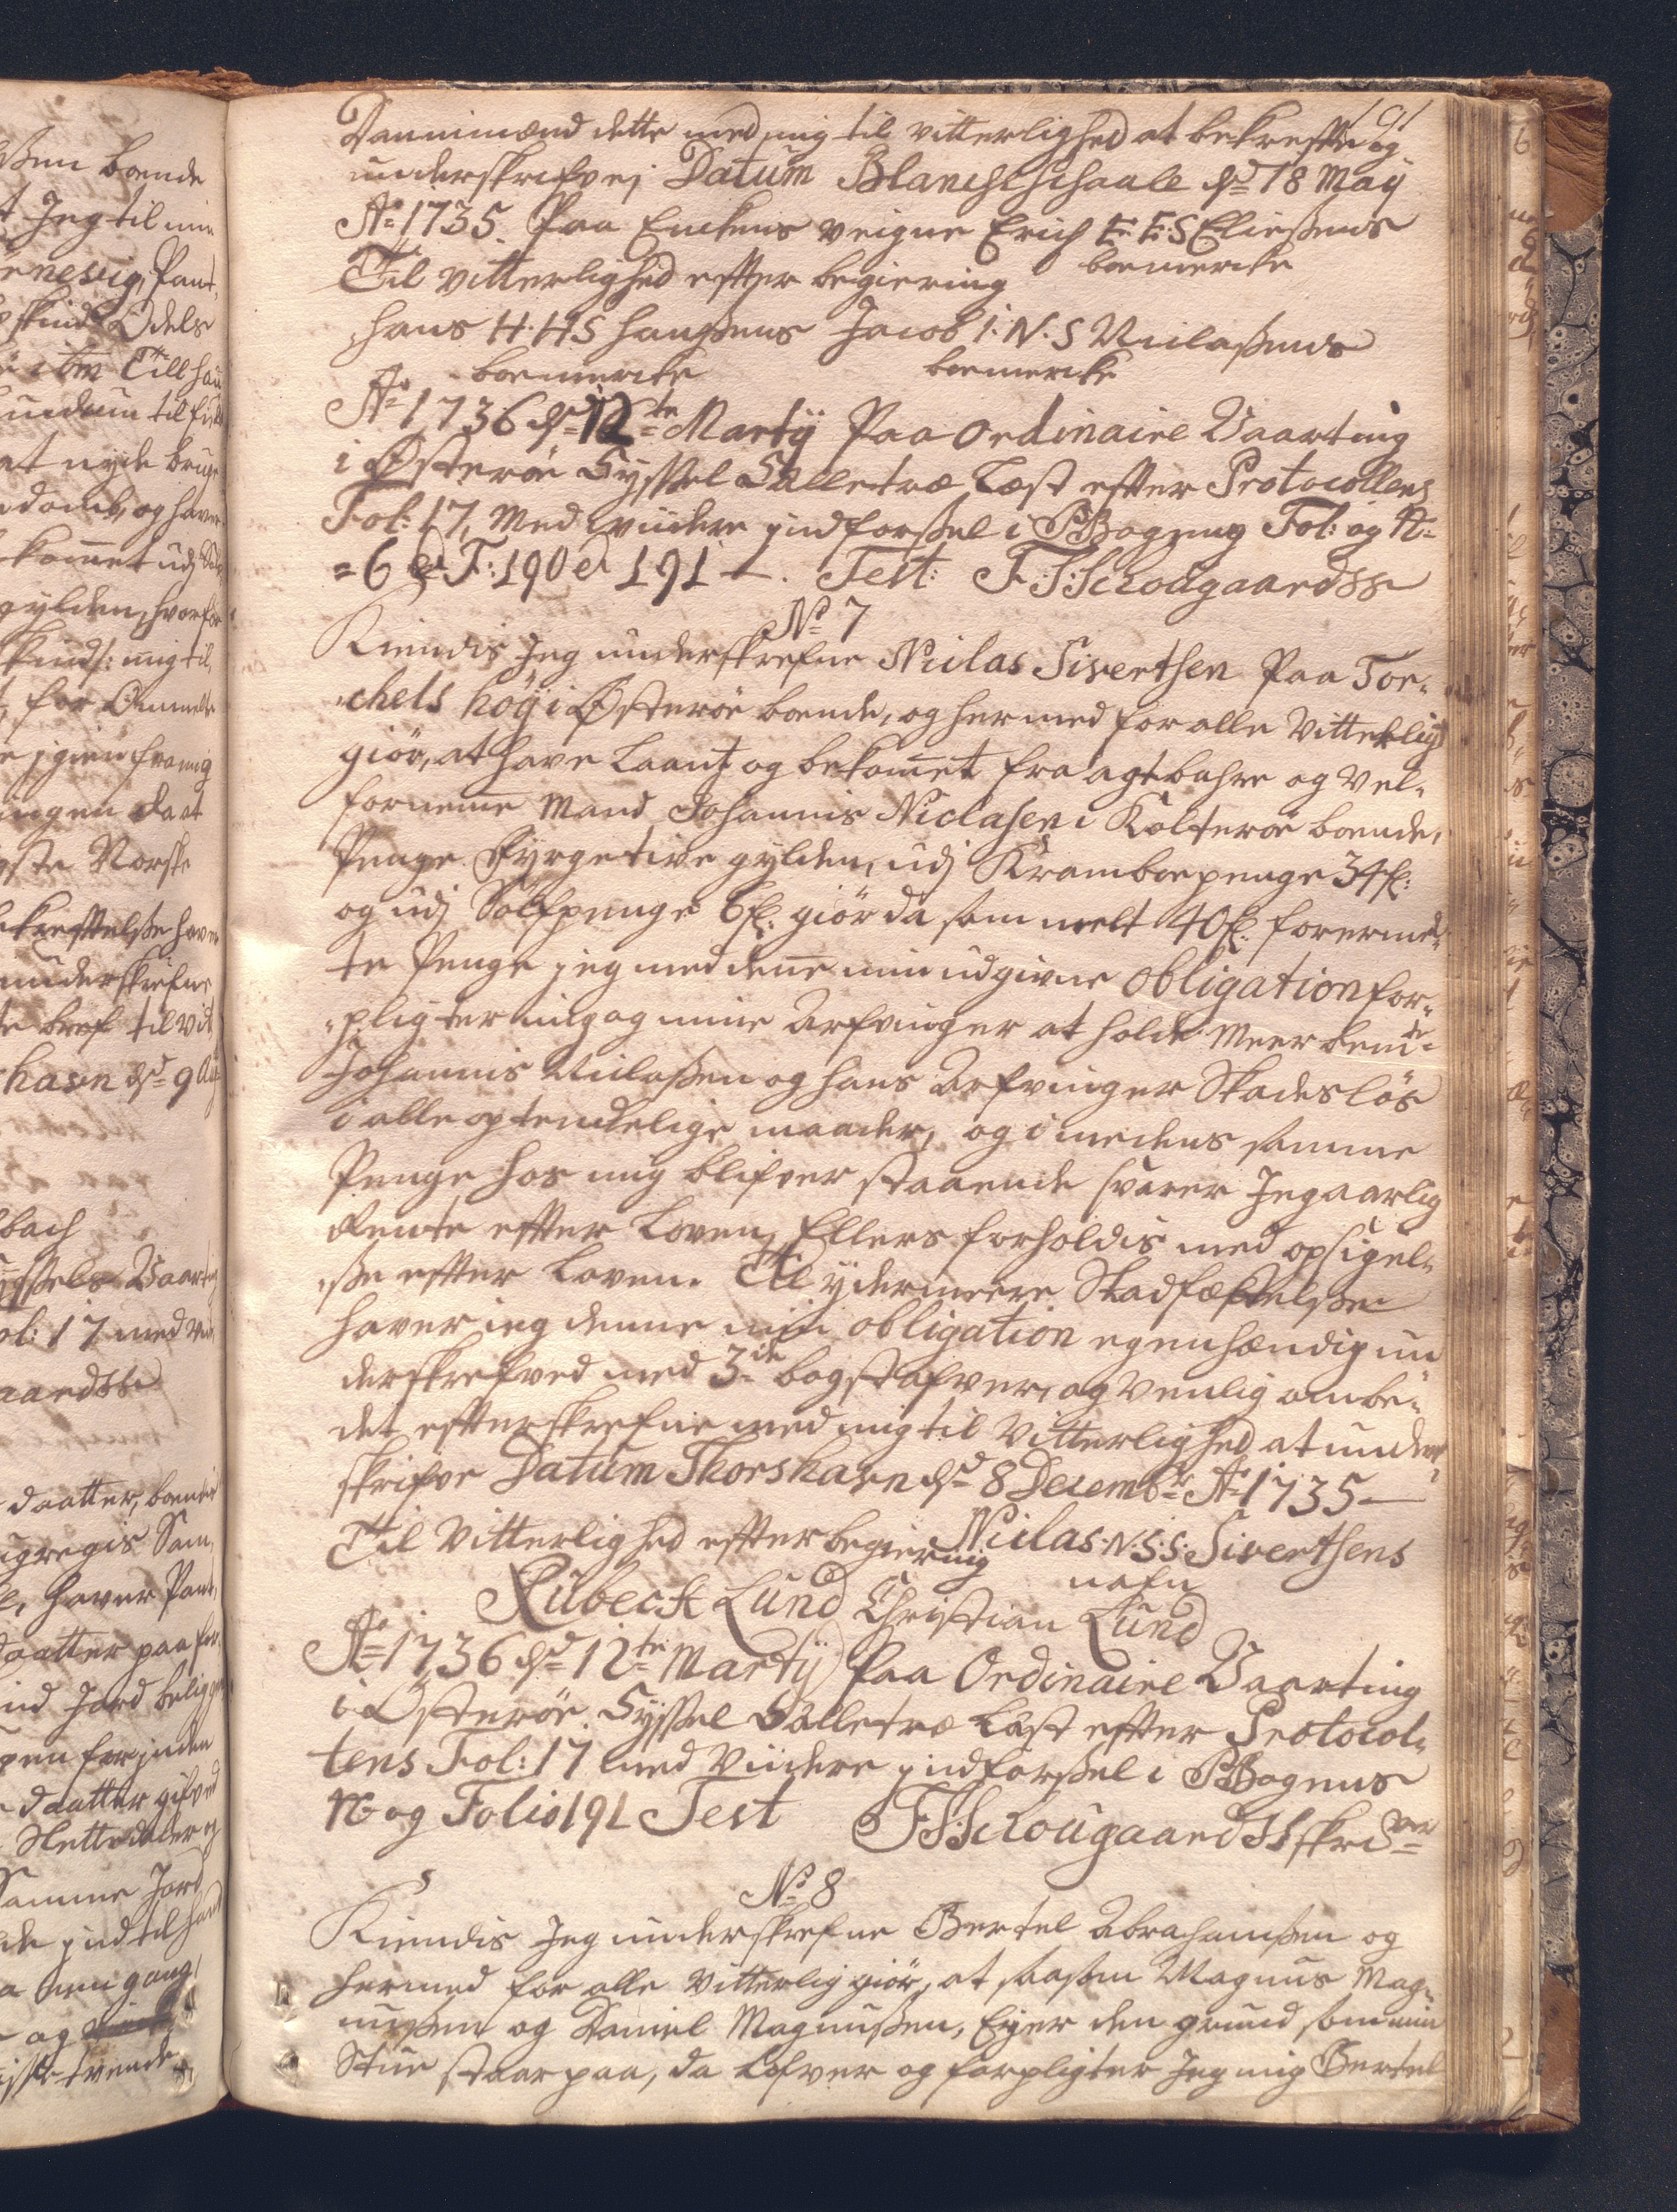 191
Dannimænd dette med mig til vitterlighed at bekrefte og
underskrefvej Datum Blanchschaale dd 18 Maÿ
Ao 1735. Paa Enckens veigne Erich E: E: S Eliesens
Til vitterlighed effter begiering boemercke
Hans H. H S Hansens Jacob I: N. S Niclasens
boemercke boemercke
Ao 1736 dd 12te Martÿ Paa Ordinaire Vaarting
i Østerøe Syssel Sælletræ Læst effter Protocollens
Fol: 17, Med viidere jndførsel i PBogens Fol: og No
= 6 et F: 190 et 191 —. Test: F: S: Schougaard SS
No 7
Kiendis Jeg underskrefne Niclas Sivertsen Paa Tor-
chels høÿ i Østerøe boende, og hermed for alle Vitterligt
giør, at have Laant og bekommet fra agtbahre og Vel-
forneme Mand Johannis Niclasen i Kolterøe boende,
Penge Fyrgetive gylden, udj Kramboepenge 34 fl:
og udj Sølfpenge 6 fl: giør da sammelt 40 fl: forermel-
te Penge jeg med denne min udgivne Obligation for-
pligter mig og mine Arfvinger at holde Meerbemte
Johannis Niclasen og hans Arfvinger Skadesløs
i alle optenckelige maader, og i medens samme
Penge hos mig blifver staaende svarer Jeg aarlig
Rente effter Loven, Ellers forholdis med opsigel-
se effter Loven. Til ydermeere Stadfæstelse
haver ieg denne min obligation egenhændig un
derskrefved med 3de bogstafver, og venlig ombe-
det effterskrefne med mig til Vitterlighed at under-
skrifve Datum Thorshavn dd 8 Decembr Ao 1735 —
Til Vitterlighed effter begiering Niclas N: S: S: Sivertsens
nafn
Rubeck Lund Christian Lund
Ao 1736 dd 12te Martÿ Paa Ordinaire Vaarting
i Østerøe Syssel Sælletræ Læst effter Protocol-
lens Fol: 17 med Viidere jndførsel i PBogens
No og Folio 191 Test F: S: Schougaard SSskriver
No 8
Kiendis Jeg underskrefne Bertel Abrahamsen og
hermed for alle Vitterlig giør, at saasom Magnus Mag-
nussen og Daniel Magnussen, Eyer den grund som min
Stue staar paa, da lofver og forpligter Jeg mig Bertel